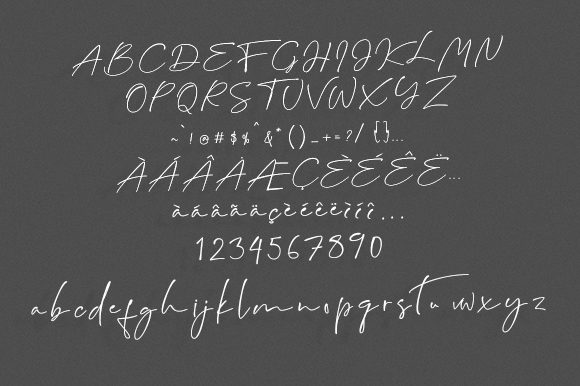 ABCDEFGHIJKLMN
OPQRSTUVWXYZ
~`!@#$%^&*()_+=?/{}...
ÀÁÂÄÆÇÈÉÊË...
àáâãäçèéêëìíî...
1234567890
abcdefghijklmnopqrstuvwxyz